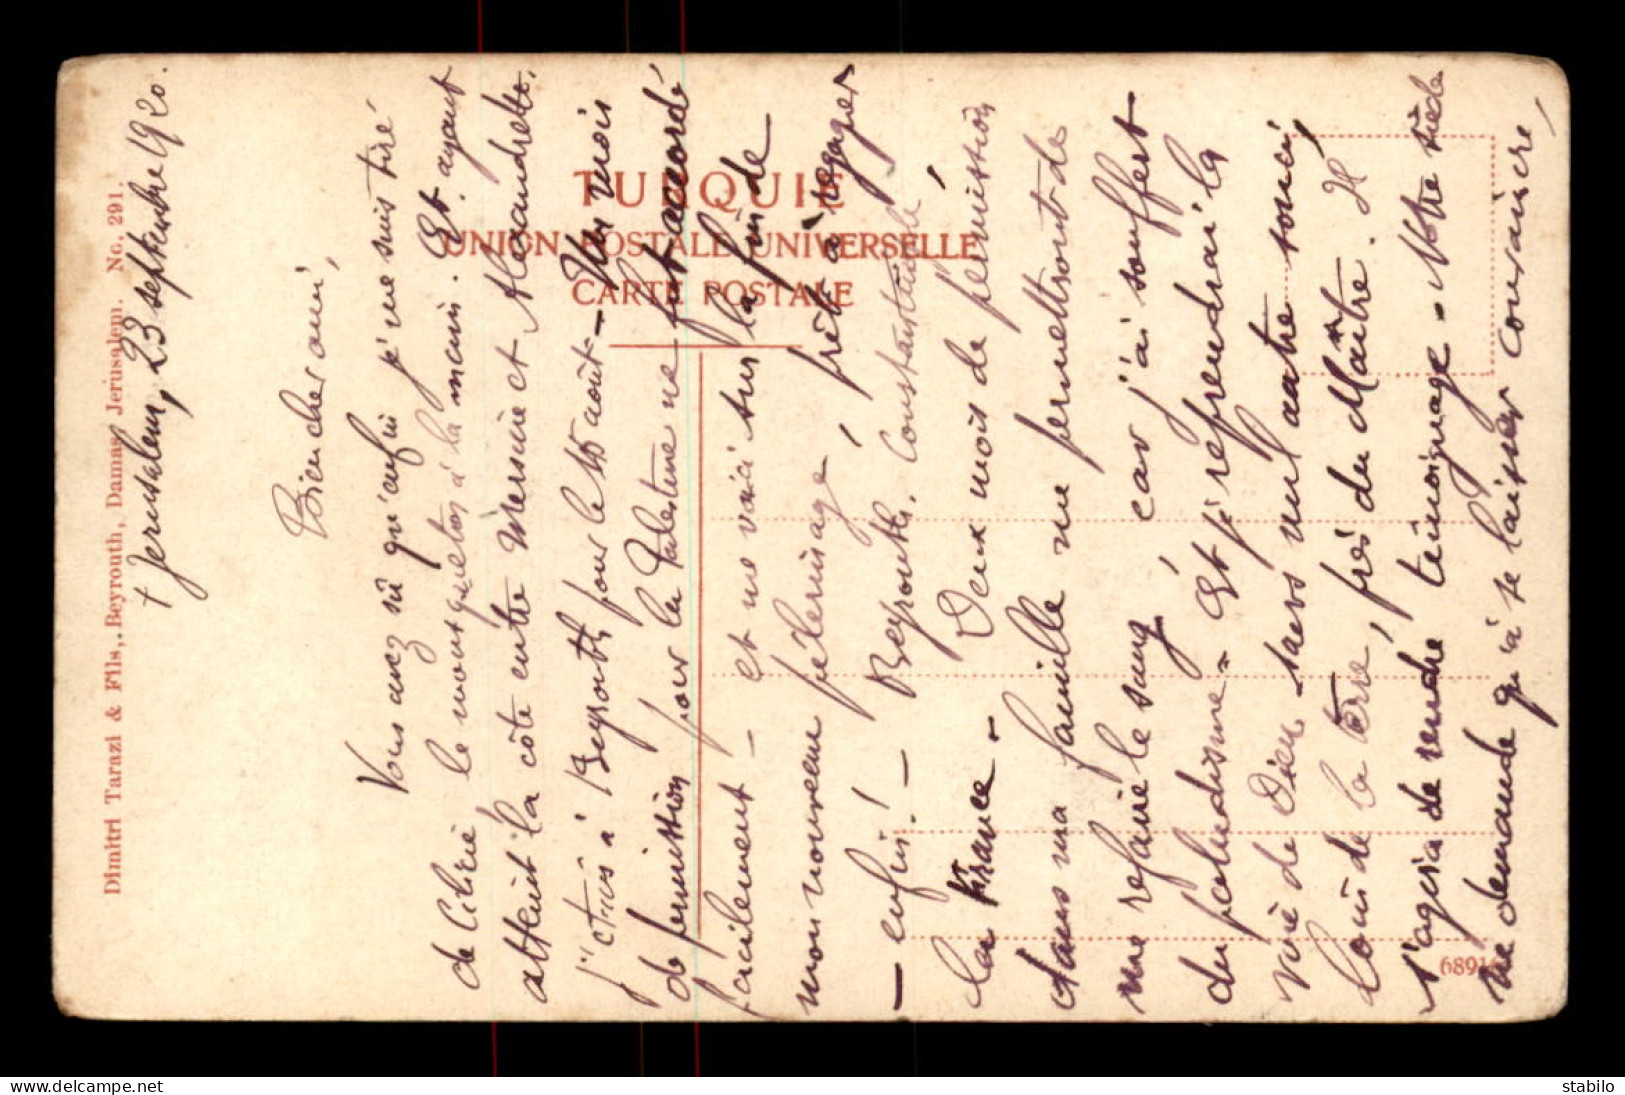 Dimitri Tarazi & Fils, Beyrouth, Damas, Jerusalem. No. 291.
TURQUIE
UNION POSTALE UNIVERSELLE
CARTE POSTALE
† Jerusalem, 23 septembre 1920.
Bien cher ami,
Vous avez sû qu'enfin je me suis tiré
de Cilicie le mousqueton à la main. Et ayant
atteint la côte entre Mersine et Alexandrette,
j'étais à Beyrouth pour le 15 août - Mon mois
de permission pour la Palestine ne fut accordé
facilement - et me voici sur la fin de
mon nouveau pélerinage, prêt à regagner
- enfin! - Beyrouth, Constantinople,
la France - Deux mois de permission
dans ma famille me permettront de
me refaire le sang, car j'ai souffert
du paludisme - Et je reprendrai la
vie de Dieu - sans nul autre souci,
loin de la terre, près du Maître. Il
s'agira de rendre témoignage - Notre siècle
ne demande qu'à se laisser convaincre,
6891
www.delcampe.net
stabilo